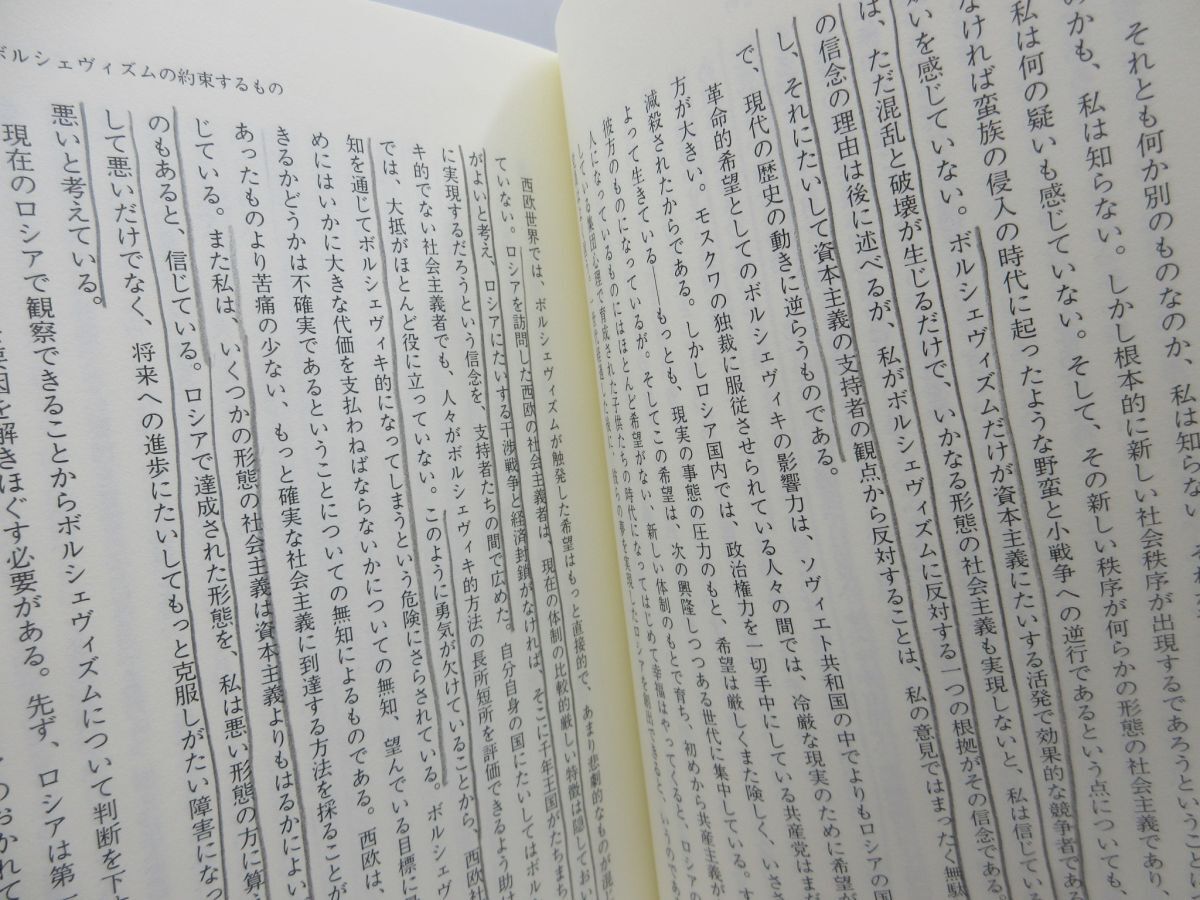 それとも何か別のものなのか、私は知らない。
のかも、私は知らない。しかし根本的に新しい社会秩序が出現するであろうということに
私は何の疑いも感じていない。そして、その新しい秩序が何らかの形態の社会主義であり、
なければ蛮族の侵入の時代に起ったような野蛮と小戦争への逆行であるという点についても、
いを感じていない。ボルシェヴィズムだけが資本主義にたいする活発で効果的な競争者である
は、ただ混乱と破壊が生じるだけで、いかなる形態の社会主義も実現しないと、私は信じている
の信念の理由は後に述べるが、私がボルシェヴィズムに反対する一つの根拠がその信念である。
し、それにたいして資本主義の支持者の観点から反対することは、私の意見ではまったく無駄
で、現代の歴史の動きに逆らうものである。
革命的希望としてのボルシェヴィキの影響力は、ソヴィエト共和国の中でよりもロシアの国
方が大きい。モスクワの独裁に服従させられている人々の間では、冷厳な現実のために希望が
減殺されたからである。しかしロシア国内では、政治権力を一切手中にしている共産党はまだ
よって生きている——もっとも、現実の事態の圧力のもと、希望は厳しくまた険しく、いささ
彼方のものになっているが。そしてこの希望は、次の興隆しつつある世代に集中している。す
人になっているものにはほとんど希望がない、新しい体制のもとで育ち、初めから共産主義が
している集団心理で育成された子供たちの時代になってはじめて幸福はやってくると、ロシアの
ボルシェヴィズムの約束するもの
西欧世界では、ボルシェヴィズムが触発した希望はもっと直接的で、あまり悲劇的なものが混じ
ていない。ロシアを訪問した西欧の社会主義者は、現在の体制の比較的厳しい特徴は隠しておい
がよいと考え、ロシアにたいする干渉戦争と経済封鎖がなければ、そこに千年王国がたちまち
に実現するだろうという信念を、支持者たちの間で広めた。自分自身の国にたいしてはボル
キ的でない社会主義者でも、人々がボルシェヴィキ的方法の長所短所を評価できるよう助け
では、大抵がほとんど役に立っていない。このように勇気が欠けていることから、西欧社
知を通じてボルシェヴィキ的になってしまうという危険にさらされている。ボルシェヴ
めにはいかに大きな代価を支払わねばならないかについての無知、望んでいる目標に
きるかどうかは不確実であるということについての無知によるものである。西欧は、
あったものより苦痛の少ない、もっと確実な社会主義に到達する方法を採ることが
じている。また私は、いくつかの形態の社会主義は資本主義よりもはるかによい
のもあると、信じている。ロシアで達成された形態を、私は悪い形態の方に算
して悪いだけでなく、将来への進歩にたいしてもっと克服しがたい障害になっ
悪いと考えている。
現在のロシアで観察できることからボルシェヴィズムについて判断を下
要因を解きほぐす必要がある。先ず、ロシアは第一
のおかれて